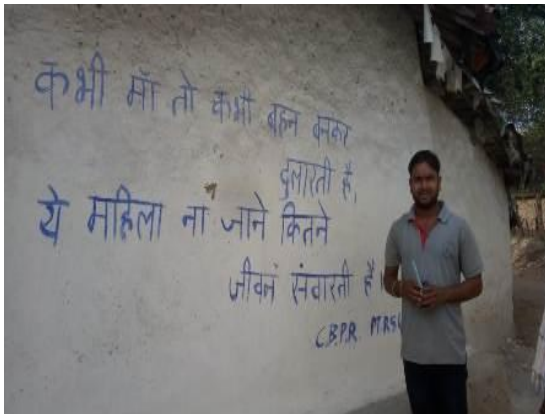 कभी माँ तो कभी बहन बनकर
दुलारती है,
ये महिला ना जाने कितने
जीवन संवारती है।
C.B.P.R.